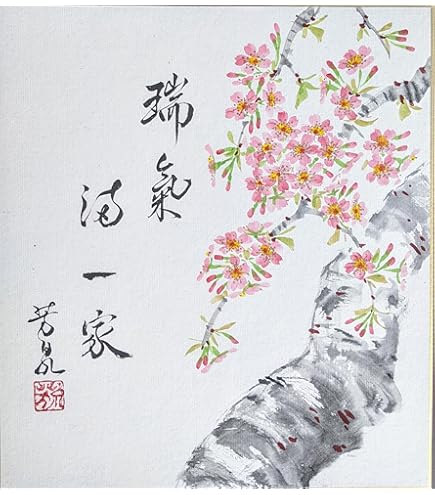 瑞氣
満一家
芳